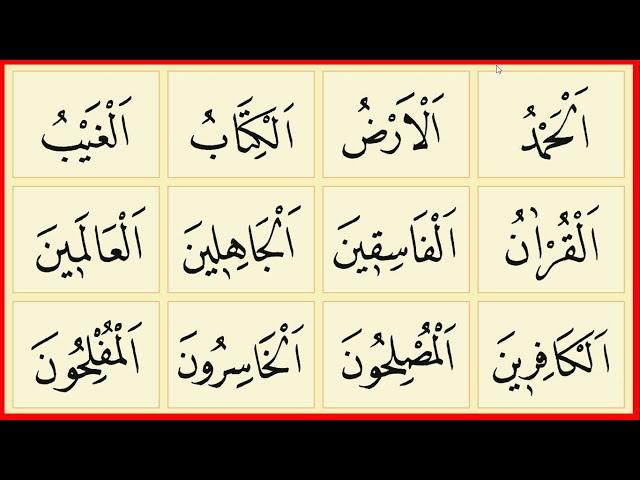 اَلْحَمْدُ اَلْاَرْضُ اَلْكِتَابُ اَلْغَيْبُ
اَلْقُرْاٰنُ اَلْفَاسِقٖينَ اَلْجَاهِلٖينَ اَلْعَالَمٖينَ
اَلْكَافِرٖينَ اَلْمُصْلِحُونَ اَلْخَاسِرُونَ اَلْمُفْلِحُونَ